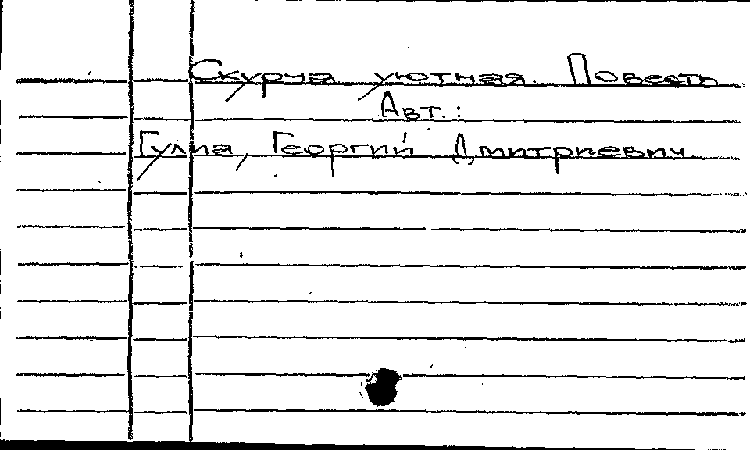 Скурча уютная. Повесть
Авт.:
Гулиа, Георгий Дмитриевич